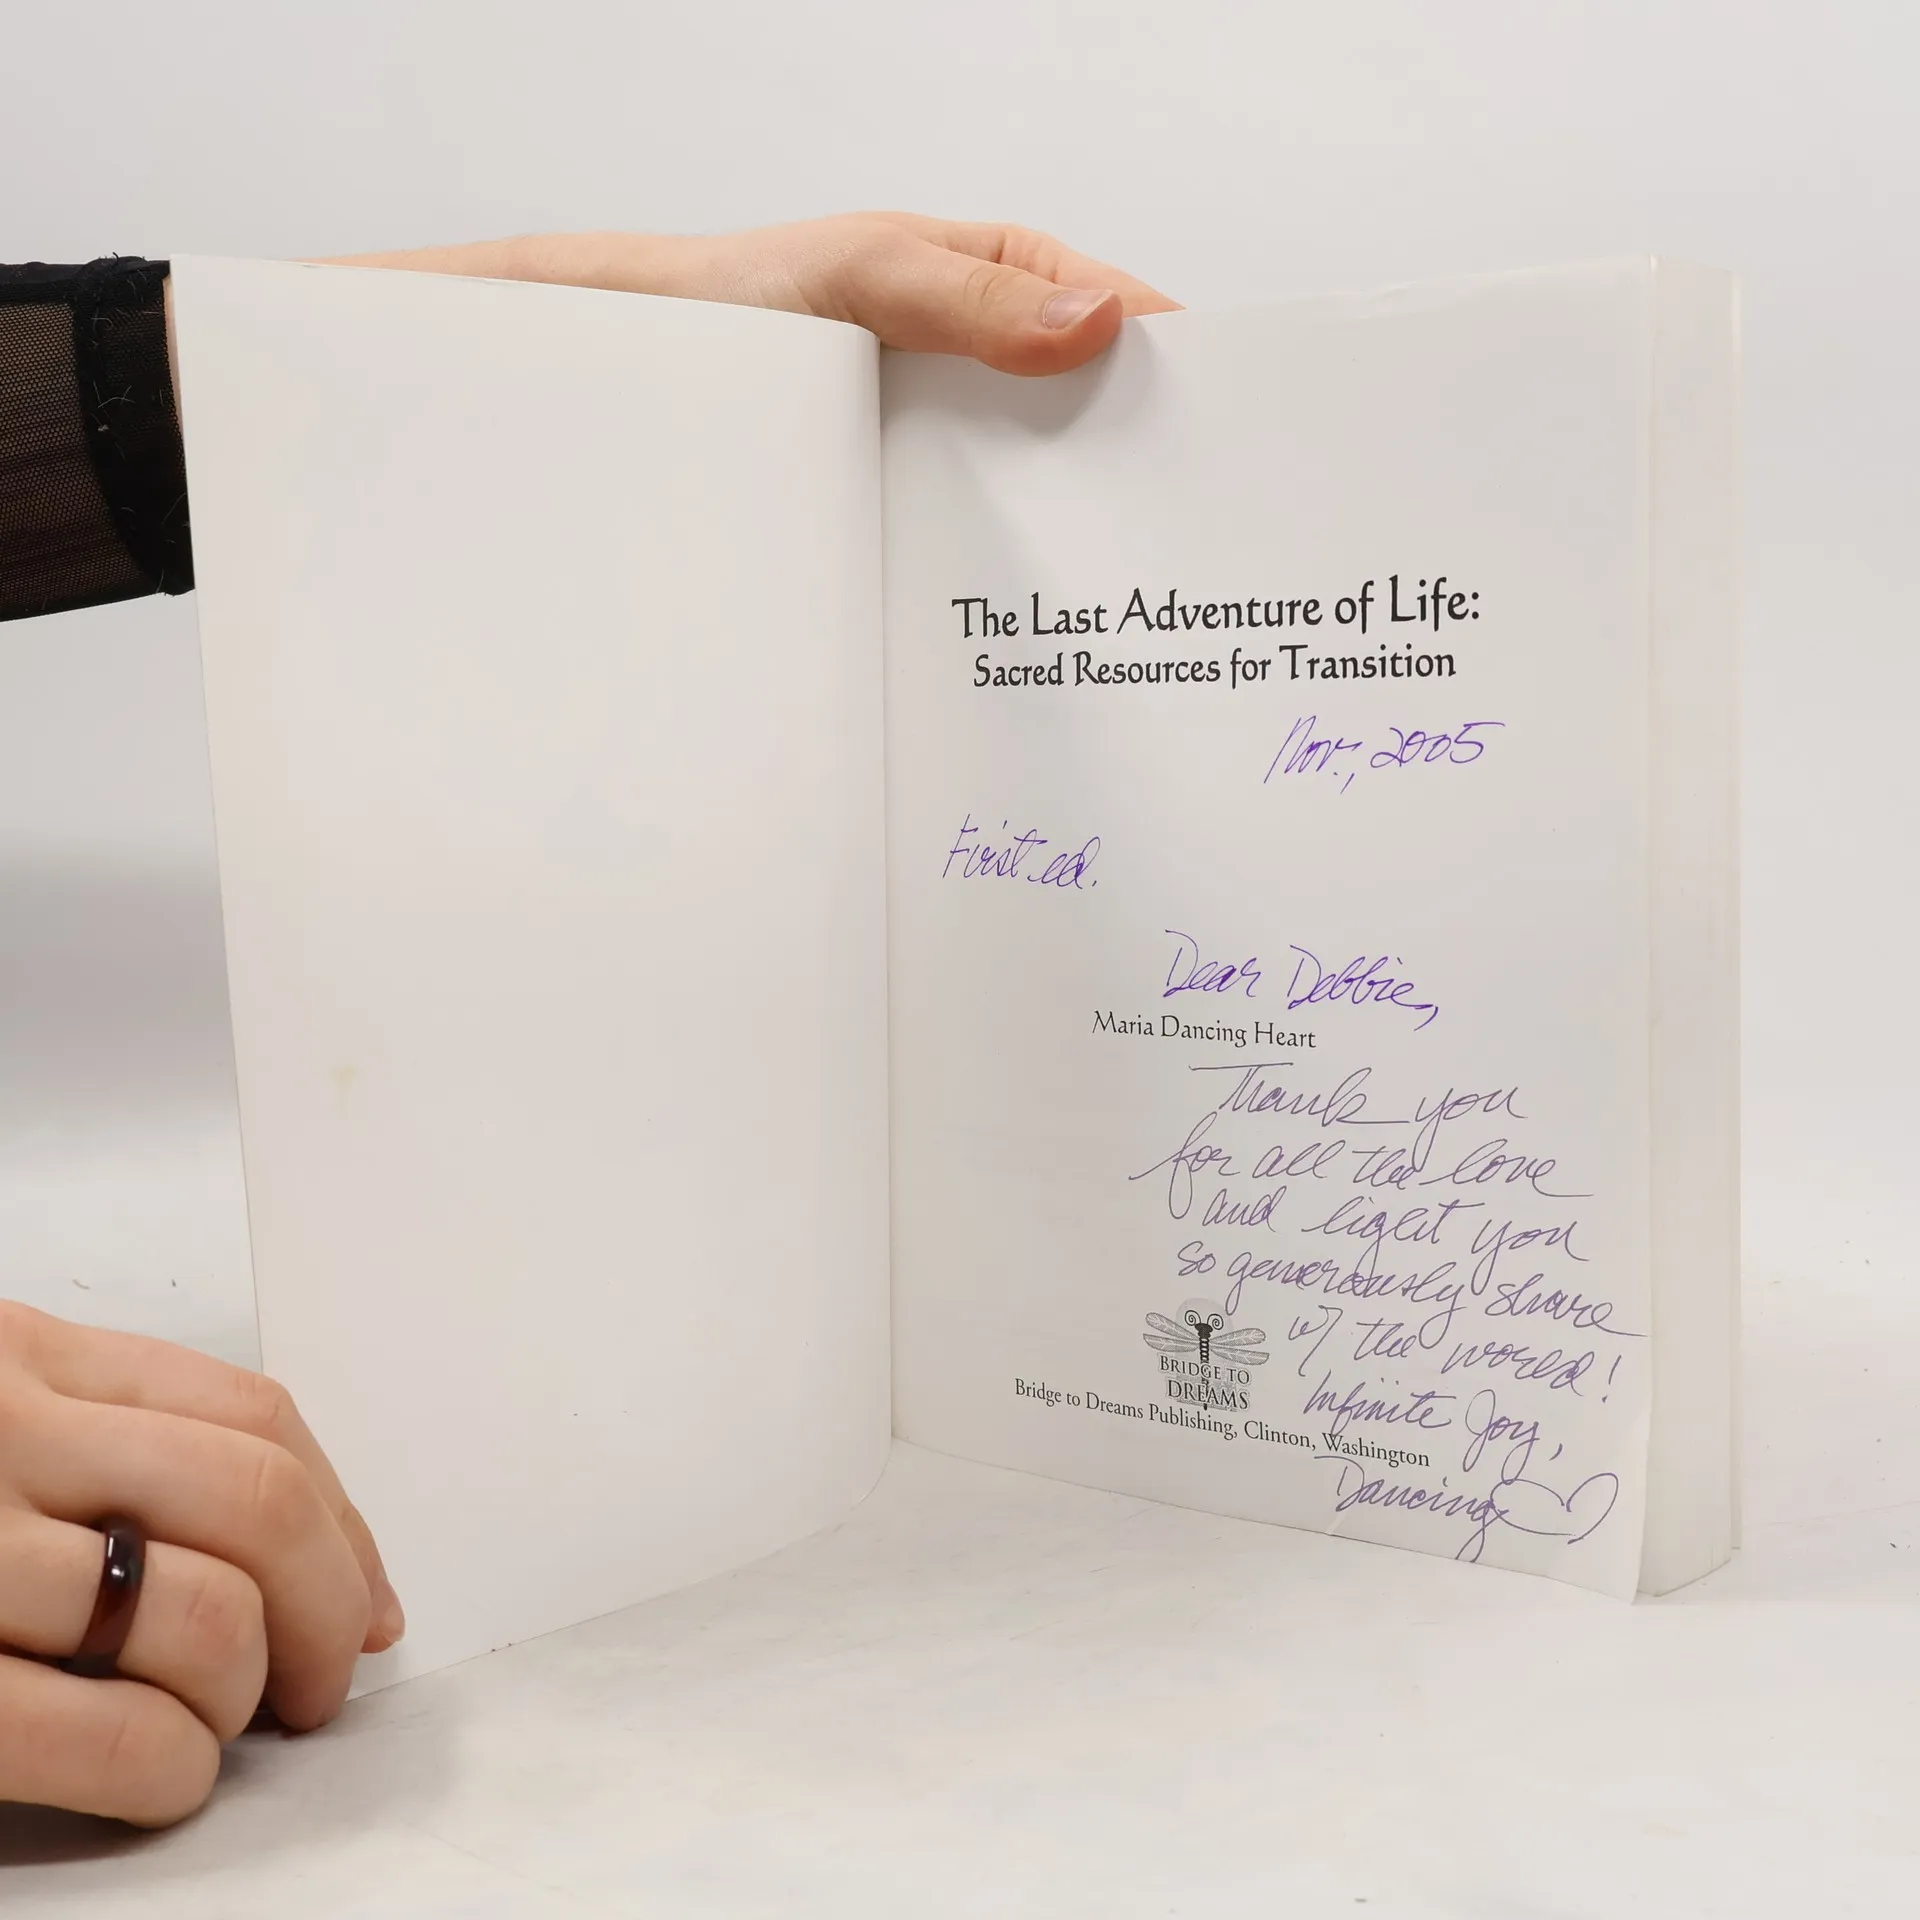 The Last Adventure of Life:
Sacred Resources for Transition
Nov., 2005
First ed.
Dear Debbie,
Maria Dancing Heart
Thank you
for all the love
and light you
so generously share
w/ the world!
BRIDGE TO
DREAMS
Infinite Joy,
Bridge to Dreams Publishing, Clinton, Washington
Dancing